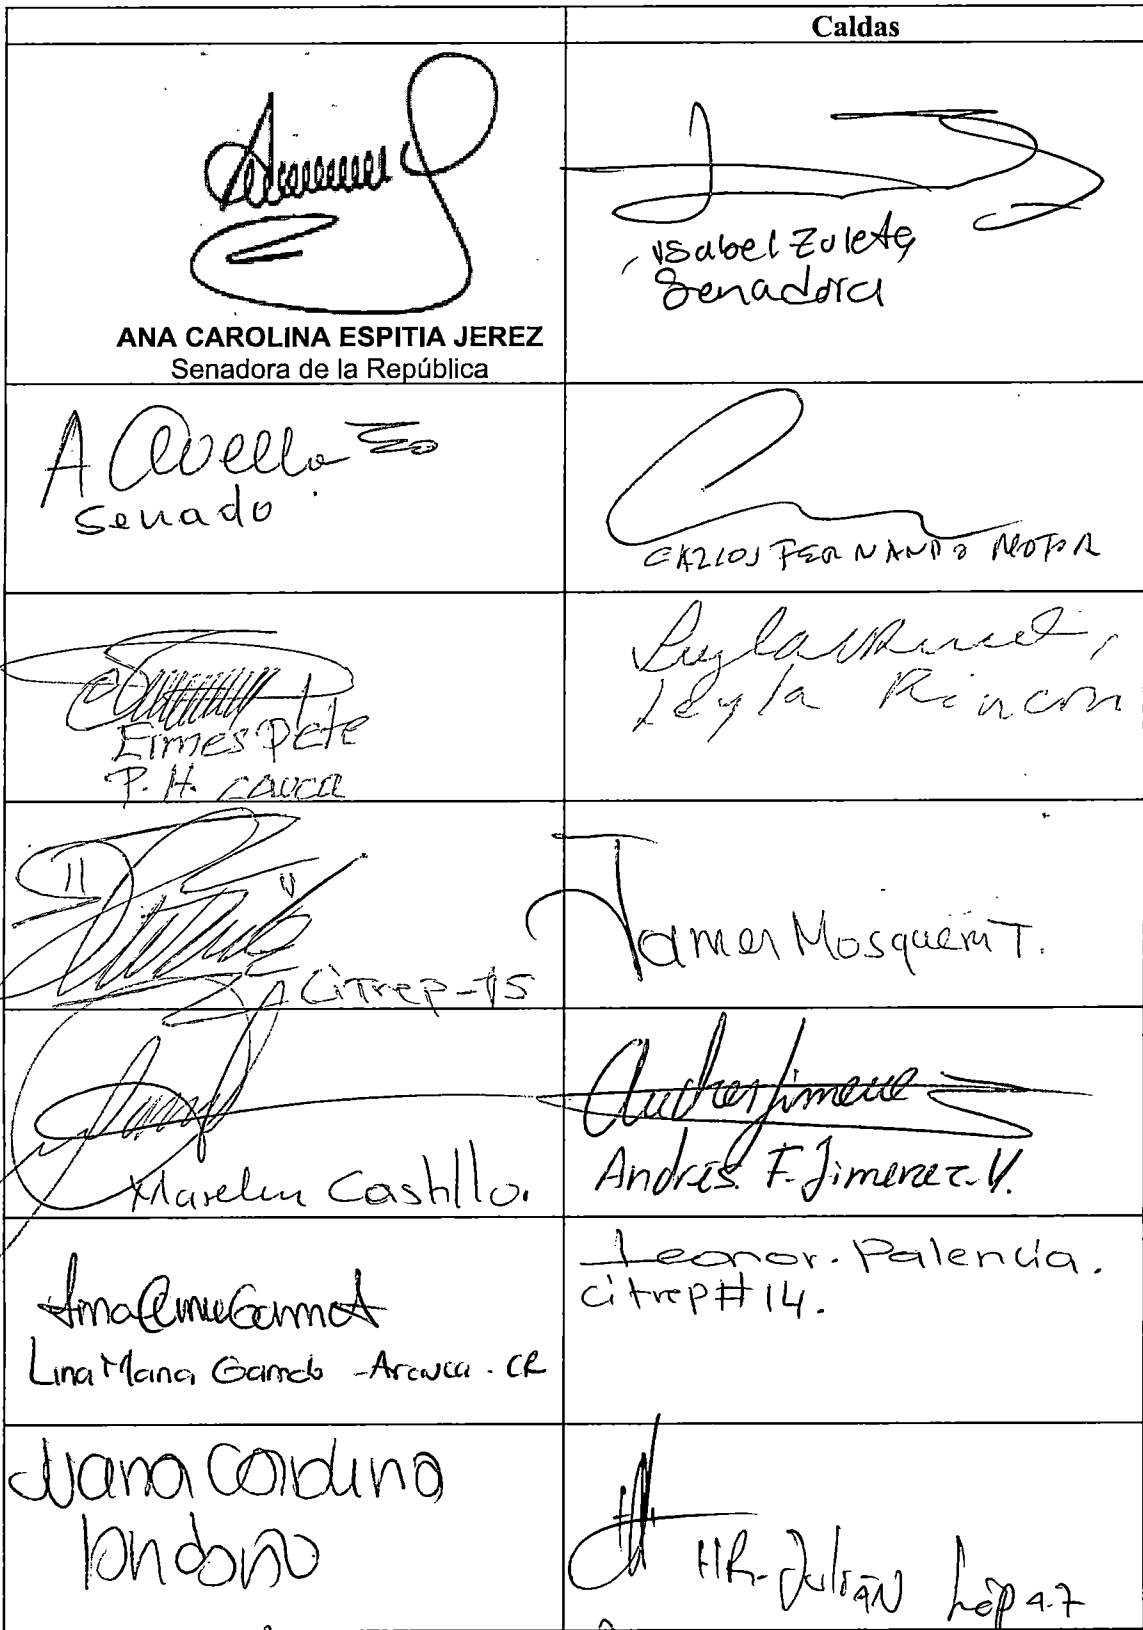 Caldas
ANA CAROLINA ESPITIA JEREZ
Senadora de la República
Isabel Zuleta
Senadora
A Avella
Senado
CARLOS FERNANDO MOTOA
Ermes Pete
P. H. Cauca
Leyla Rincon
Citrep-15
James Mosquera T.
Marelen Castillo.
Andrés F. Jimenez. V.
Lina Maria Garrido - Arauca - CR
Leonor. Palencia.
citrep #14.
Juana Carolina
londoño
HR- Julián López